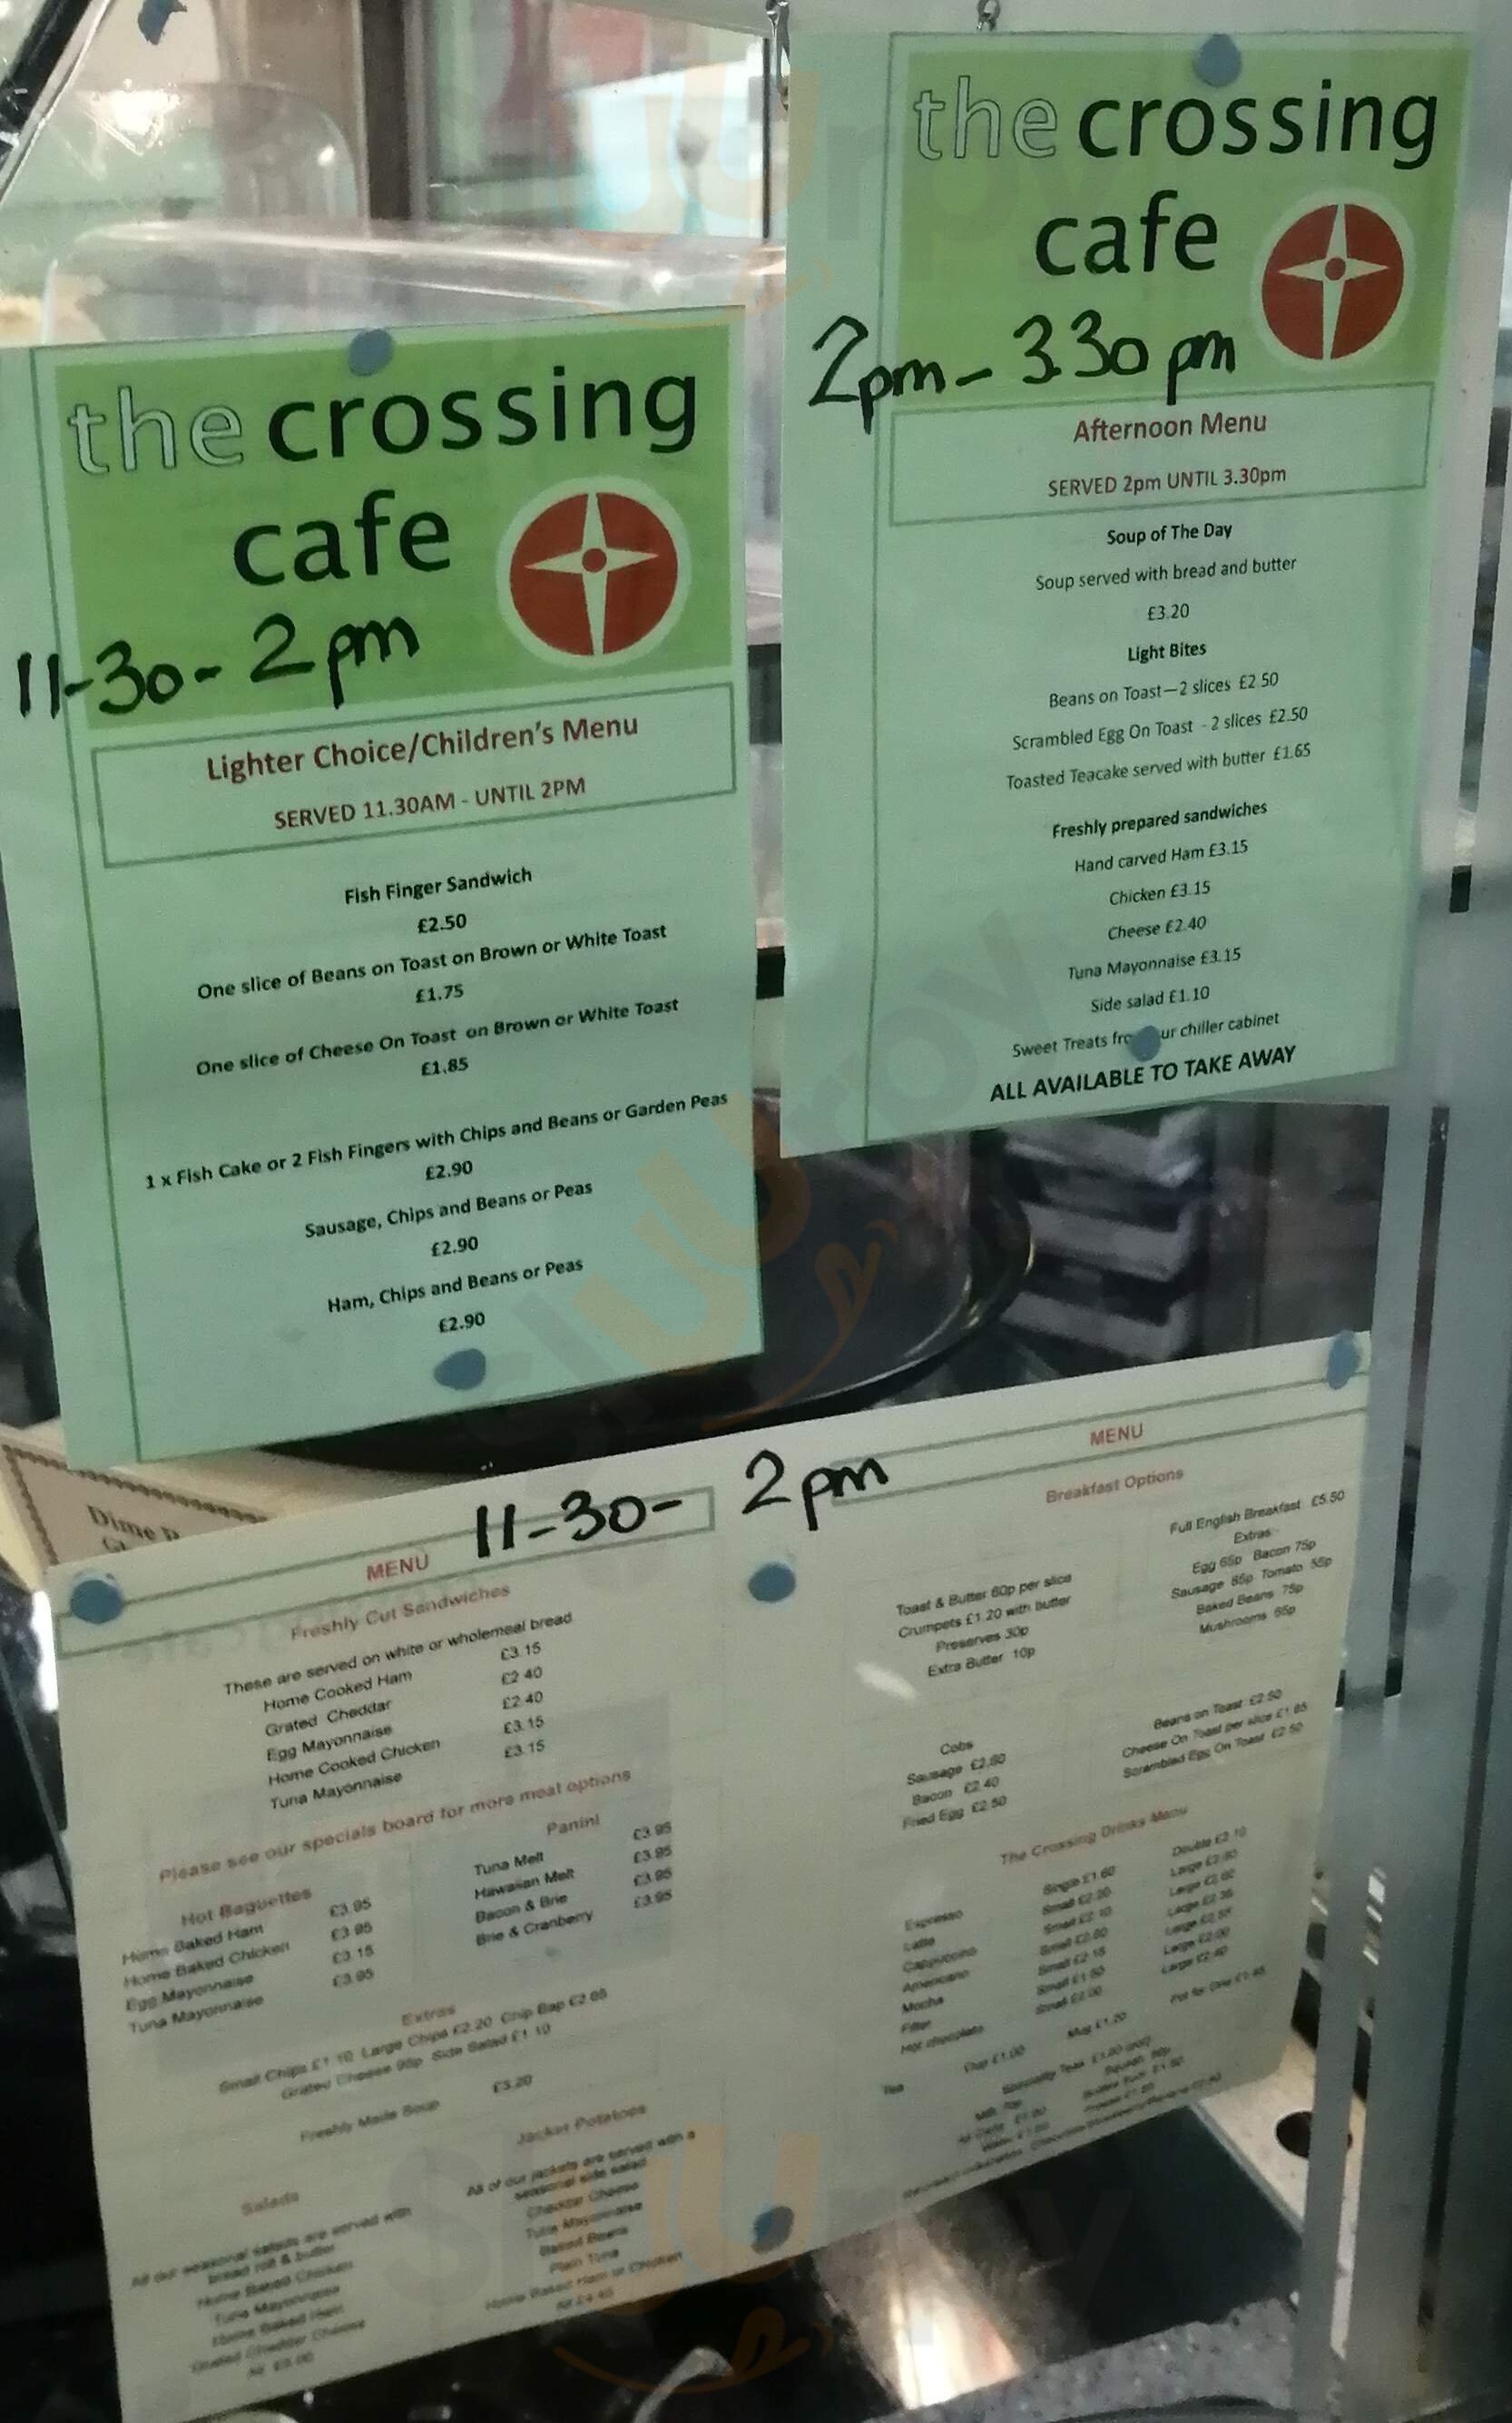 the crossing
cafe
11-30- 2pm
Lighter Choice/Children's Menu
SERVED 11.30AM - UNTIL 2PM
Fish Finger Sandwich
£2.50
One slice of Beans on Toast on Brown or White Toast
£1.75
One slice of Cheese On Toast on Brown or White Toast
£1.85
1 x Fish Cake or 2 Fish Fingers with Chips and Beans or Garden Peas
£2.90
Sausage, Chips and Beans or Peas
£2.90
Ham, Chips and Beans or Peas
£2.90
the crossing
cafe
2pm - 330pm
Afternoon Menu
SERVED 2pm UNTIL 3.30pm
Soup of The Day
Soup served with bread and butter
£3.20
Light Bites
Beans on Toast—2 slices £2.50
Scrambled Egg On Toast - 2 slices £2.50
Toasted Teacake served with butter £1.65
Freshly prepared sandwiches
Hand carved Ham £3.15
Chicken £3.15
Cheese £2.40
Tuna Mayonnaise £3.15
Side salad £1.10
Sweet Treats ur chiller cabinet
ALL AVAILABLE TO TAKE AWAY
Dime
11-30- 2pm
MENU
Freshly Cut Sandwiches
These are served on white or wholemeal bread
Home Cooked Ham £3.15
Grated Cheddar £2.40
Egg Mayonnaise £2.40
Home Cooked Chicken £3.15
Tuna Mayonnaise £3.15
Please see our specials board for more meat options
Hot Baguettes
Home Baked Ham £3.95
Home Baked Chicken £3.95
Egg Mayonnaise £3.15
Tuna Mayonnaise £3.95
Panini
Tuna Melt £3.95
Hawaiian Melt £3.95
Bacon & Brie £3.95
Brie & Cranberry £3.95
Extras
Small Chips £1.10 Large Chips £2.20 Chip Bap
Grated Cheese Side Salad £1.10
Freshly Made Soup £3.20
Salads
All our seasonal salads are served with
bread roll & butter
Home Baked Chicken
Tuna Mayonnaise
Home Baked Ham
Grated Cheddar Cheese
Jacket Potatoes
All of our jackets are served with a
seasonal side salad
Cheddar Cheese
Tuna Mayonnaise
Baked Beans
Plain Tuna
Home Baked Ham or Chicken
MENU
Breakfast Options
Toast & Butter 60p per slice
Crumpets £1.20 with butter
Preserves 30p
Extra Butter 10p
Full English Breakfast £5.50
Extras
Egg 65p Bacon 75p
Sausage 85p Tomato 55p
Baked Beans 75p
Mushrooms 65p
Cobs
Sausage
Bacon £2.40
Fried Egg £2.50
Beans on Toast £2.50
Cheese On Toast per slice
Scrambled Egg On Toast £2.50
The Crossing Drinks Menu
Espresso Single £1.60 Double £2.10
Latte Small Large
Cappuccino Small Large
Americano Small Large
Mocha Small Large
Filter Small Large
Hot chocolate Small Large
Tea Cup £1.00 Mug £1.20 Pot for One
Speciality Teas